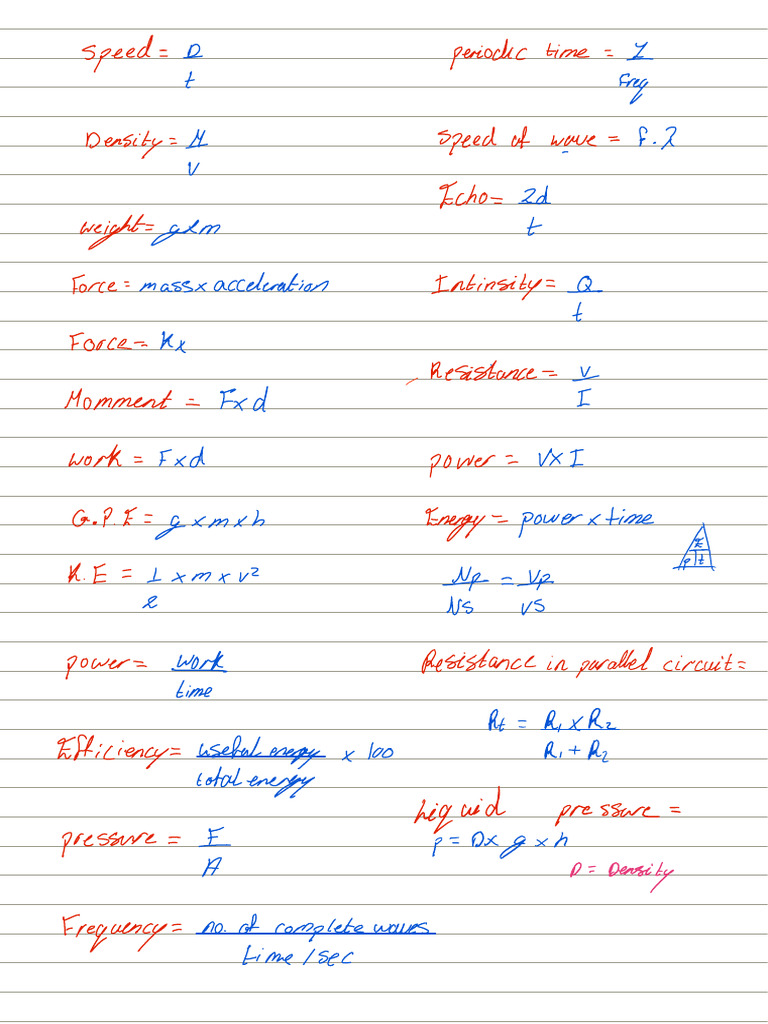 Speed = D
t
Density = M
V
weight = g x m
Force = mass x acceleration
Force = Kx
Momment = F x d
work = F x d
G.P.E = g x m x h
K.E = 1 x m x v²
2
power = work
time
Efficiency = useful energy x 100
total energy
pressure = F
A
Frequency = no. of complete waves
time / sec
periodic time = 1
freq
Speed of wave = f . λ
Echo = 2d
t
Intinsity = Q
t
Resistance = V
I
power = V x I
Energy = power x time
E
P t
Np = Vp
Ns Vs
Resistance in parallel circuit =
Rt = R₁ x R₂
R₁ + R₂
Liquid pressure =
p = D x g x h
D = Density